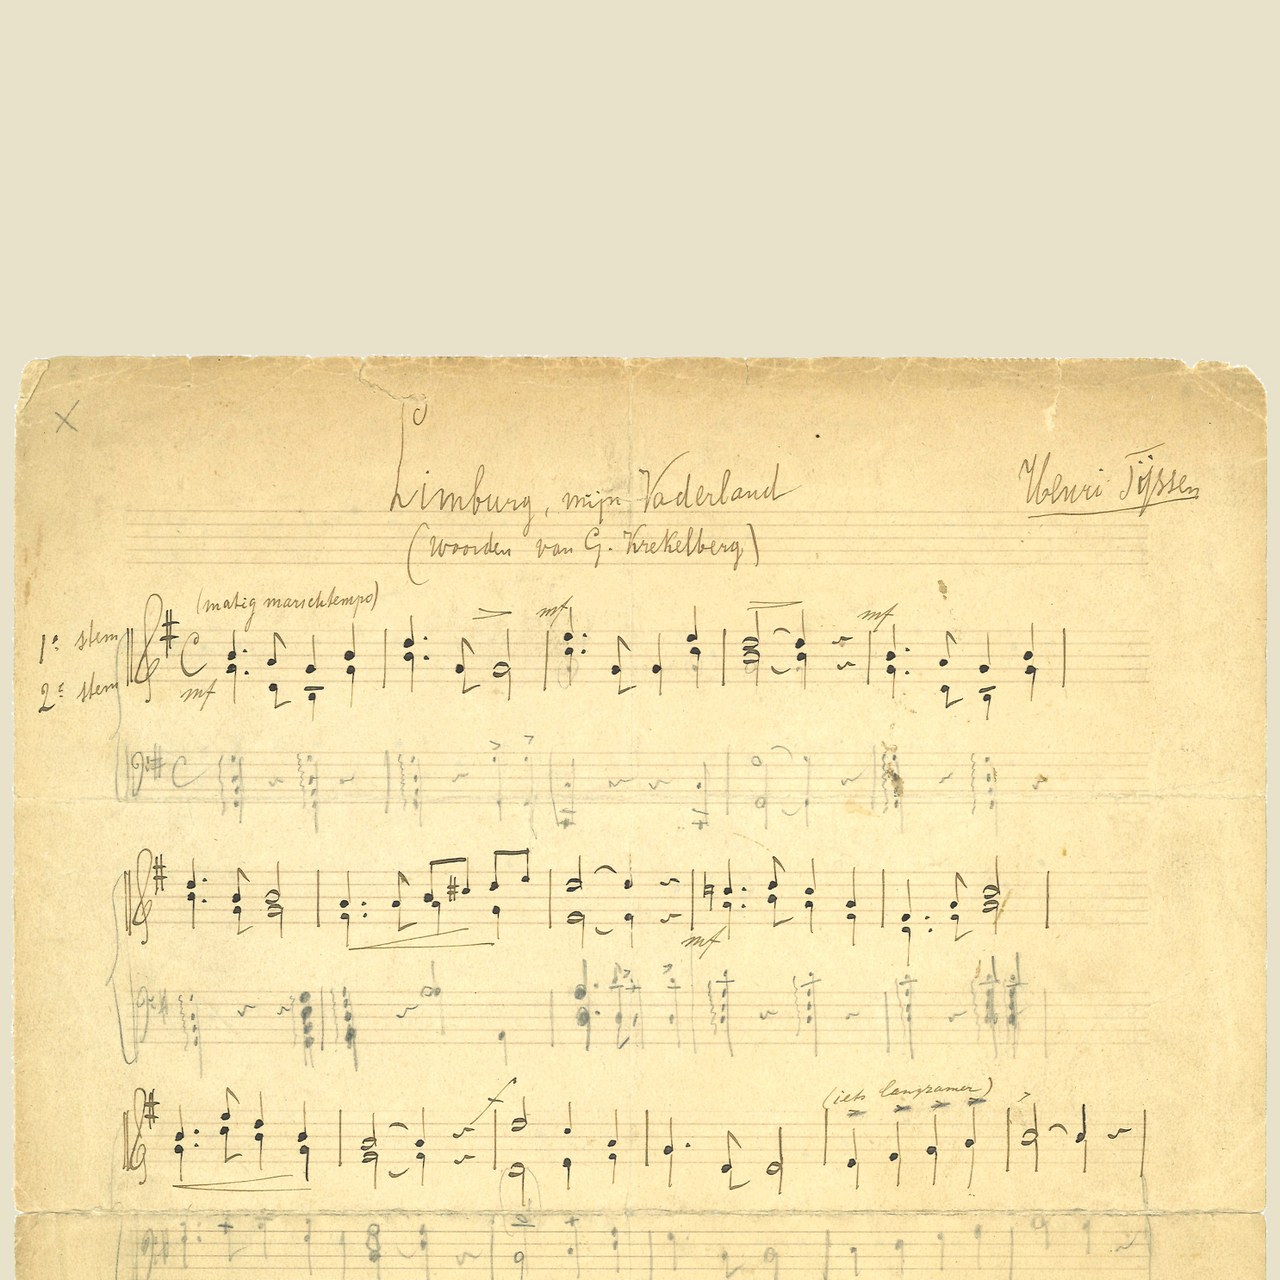 Limburg, mijn Vaderland
Henri Tijssen
(woorden van G. Krekelberg)
(matig marschtempo)
1e stem
2e stem
mf
mf
mf
mf
f
(iets langzamer)